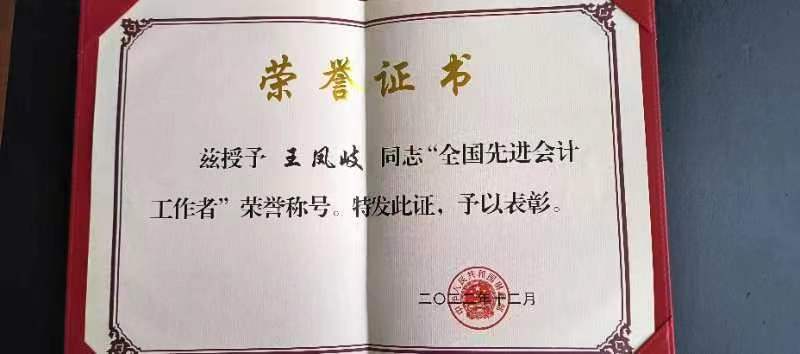 荣誉证书
兹授予 王凤岐 同志“全国先进会计
工作者”荣誉称号。特发此证，予以表彰。
二〇二二年十二月
中华人民共和国财政部